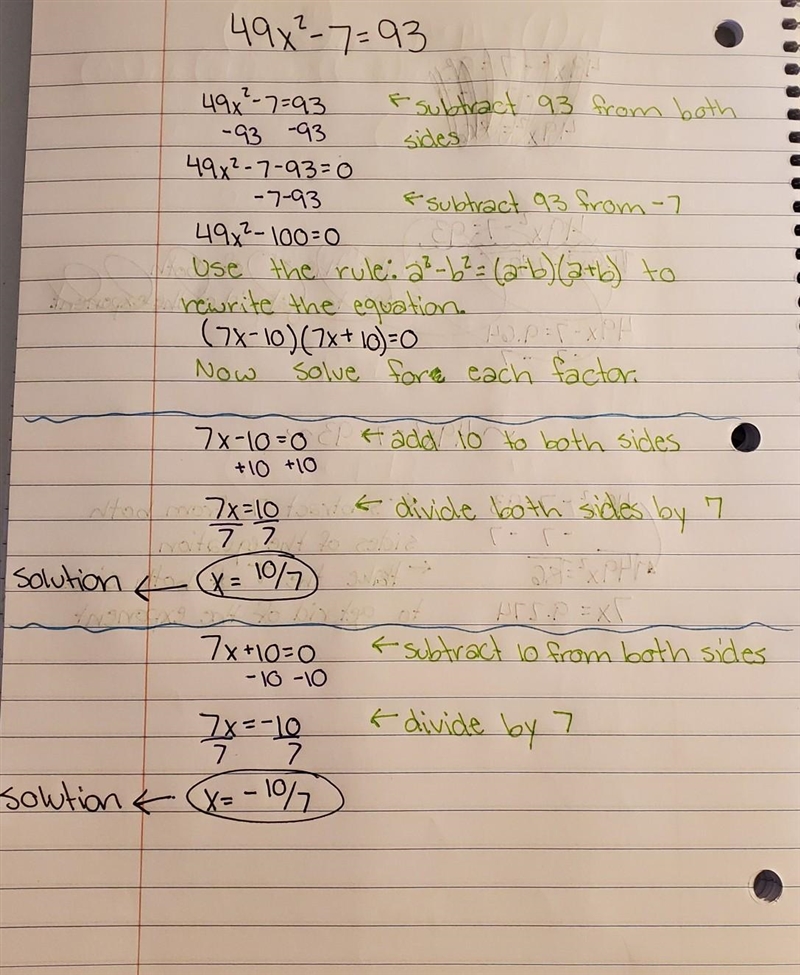 49x²-7=93
49x²-7=93 ← subtract 93 from both
-93 -93 sides
49x²-7-93=0
-7-93 ← subtract 93 from -7
49x²-100=0
Use the rule: a²-b²=(a-b)(a+b) to
rewrite the equation.
(7x-10)(7x+10)=0
Now solve for each factor.
7x-10=0 ← add 10 to both sides
+10 +10
7x=10 ← divide both sides by 7
7 7
solution ← x= 10/7
7x+10=0 ← subtract 10 from both sides
-10 -10
7x=-10 ← divide by 7
7 7
solution ← x= -10/7